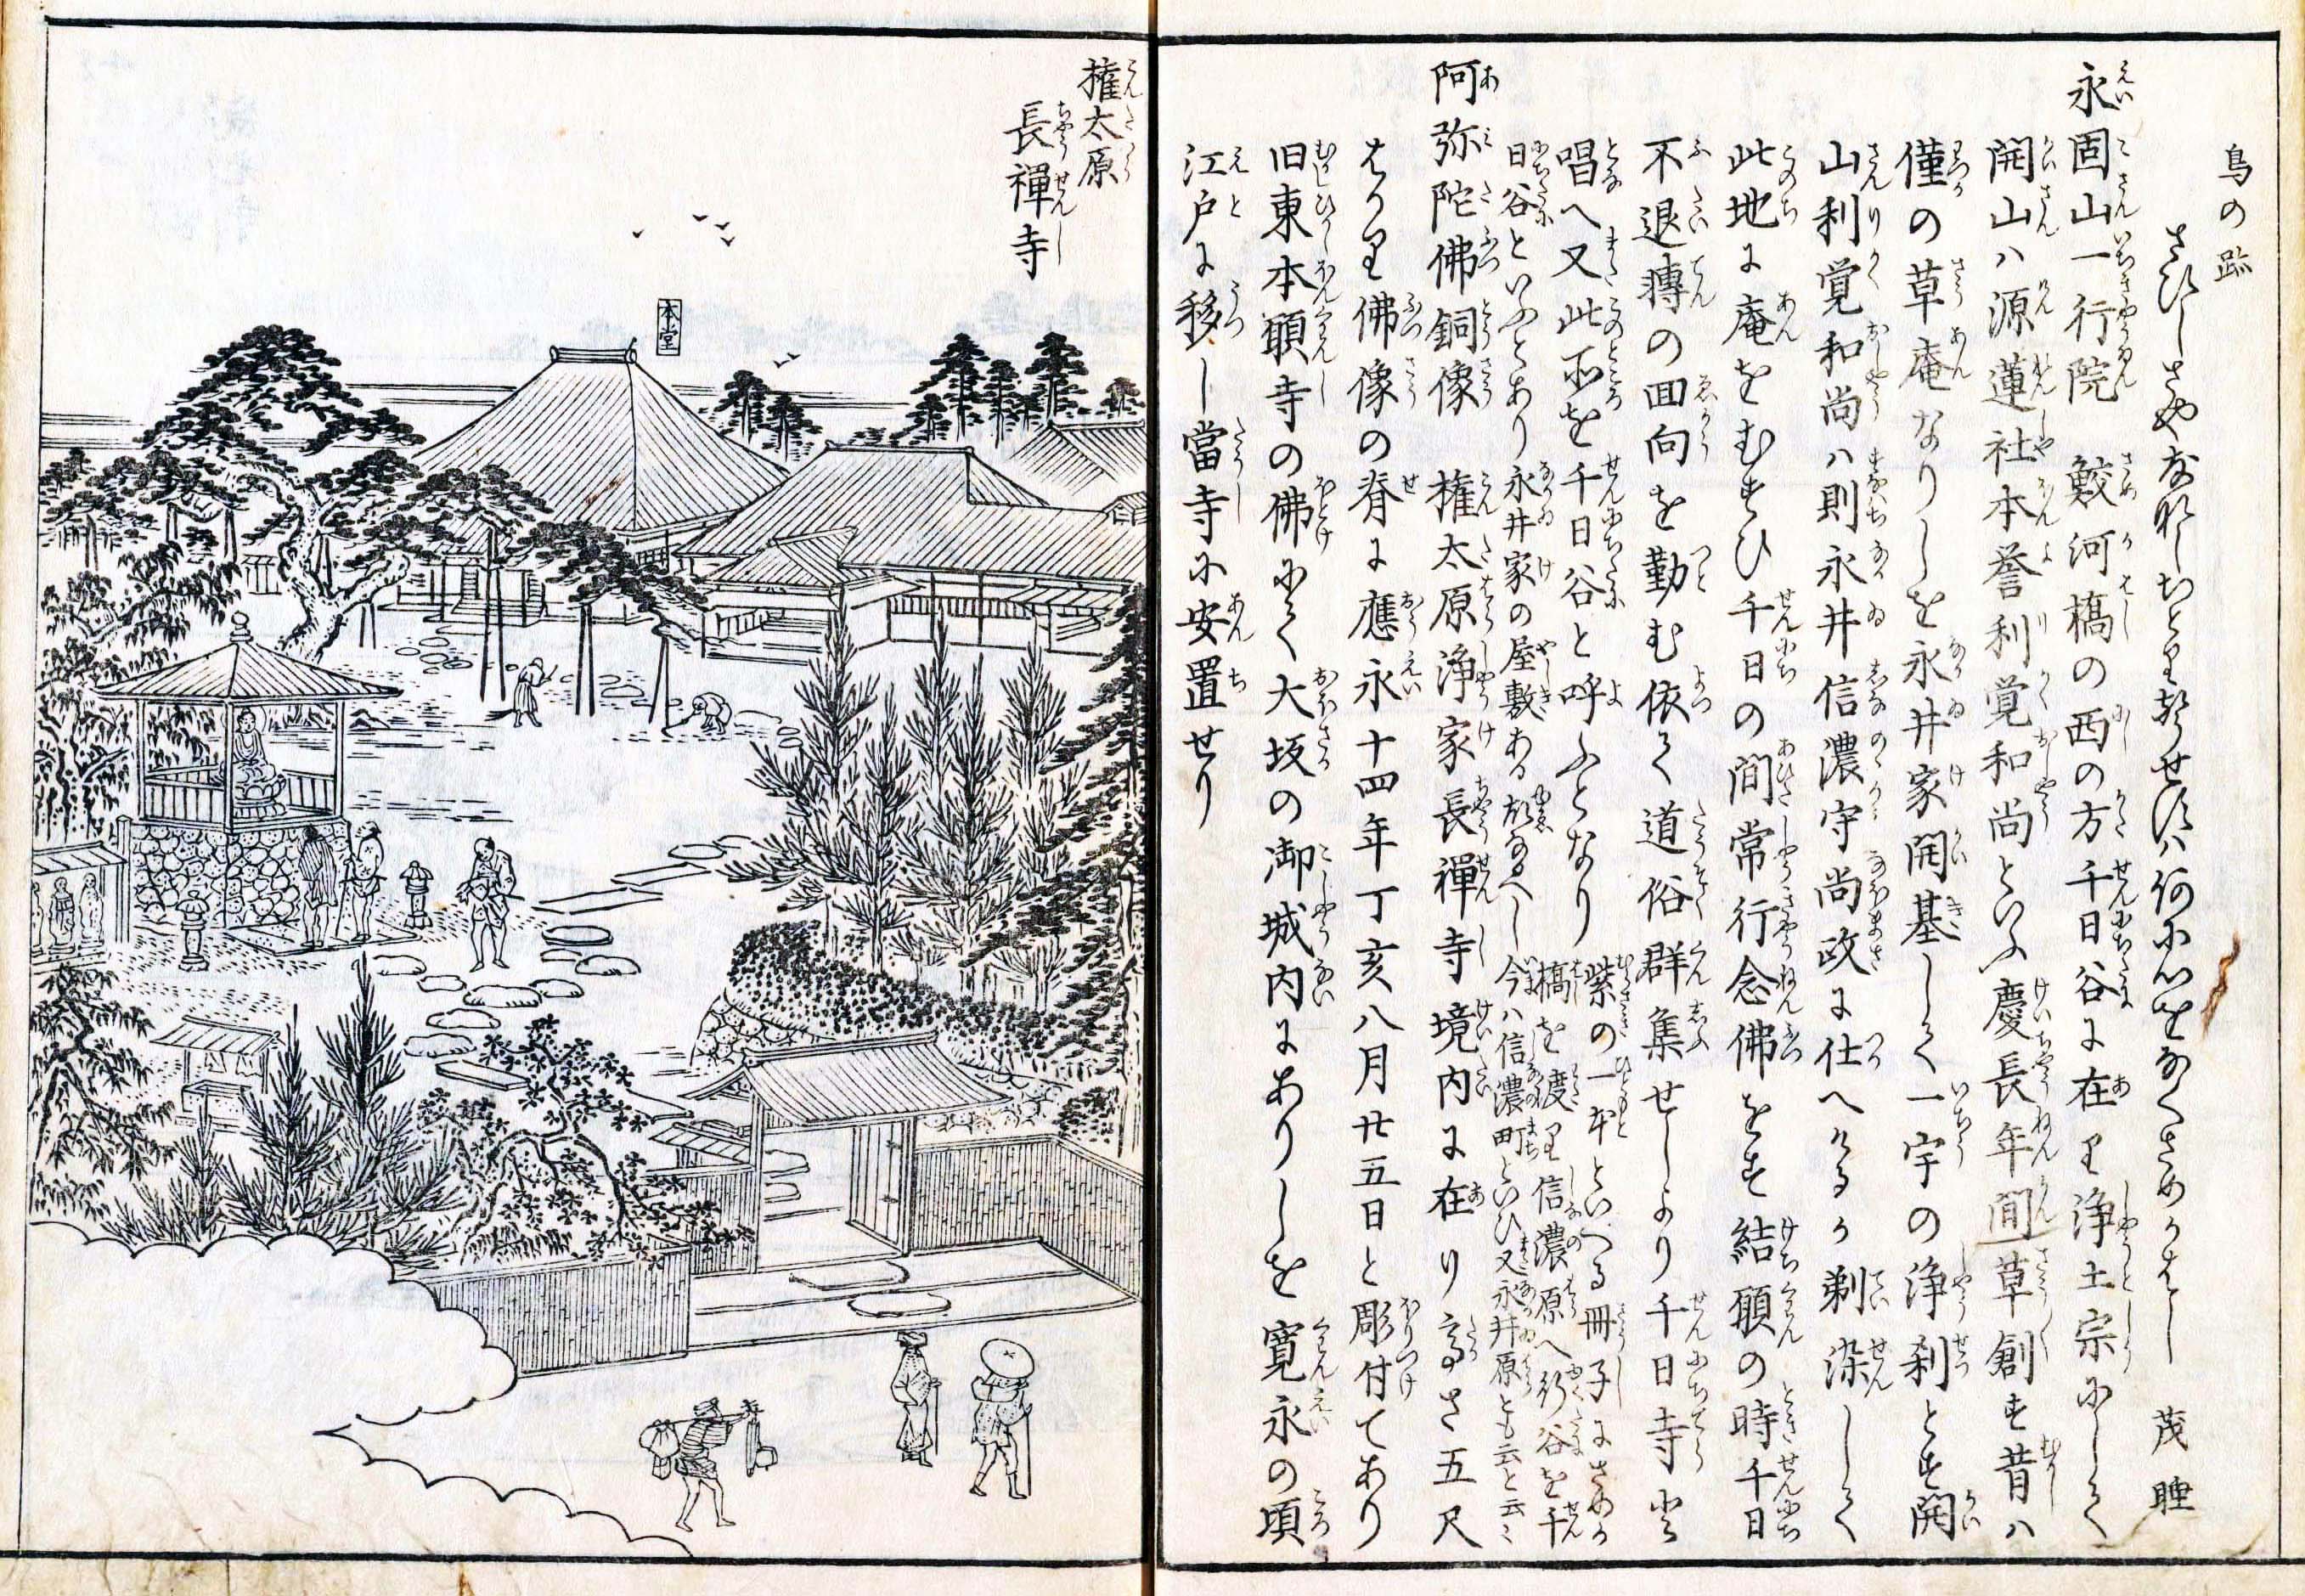 鳥の跡
さひしさやなれしちとり
茂睡
永固山一行院 鮫河橋の西の方千日谷に在り浄土宗にして
開山ハ源蓮社本誉利覚和尚といふ慶長年間草創す昔ハ
僅の草庵なりしを永井家開基して一宇の浄刹とす開
山利覚和尚ハ則永井信濃守尚政に仕へけるか剃染して
此地に庵をむすひ千日の間常行念佛をす結願の時千日
不退轉の回向を勤む依て道俗群集せしより千日寺と
唱へ又此所を千日谷と呼ふとなり
紫の一本といへる冊子にさめか
橋を渡り信濃原へ行谷を千
日谷といふとあり永井家の屋敷ある故なるへし今ハ信濃町といひ又永井原とも云と云々
阿弥陀佛銅像 権太原浄家長禪寺境内に在り高さ五尺
はかり佛像の脊に應永十四年丁亥八月廿五日と彫付てあり
旧東本願寺の佛にて大坂の御城内にありしを寛永の頃
江戸に移し當寺に安置せり
権太原
長禪寺
本堂